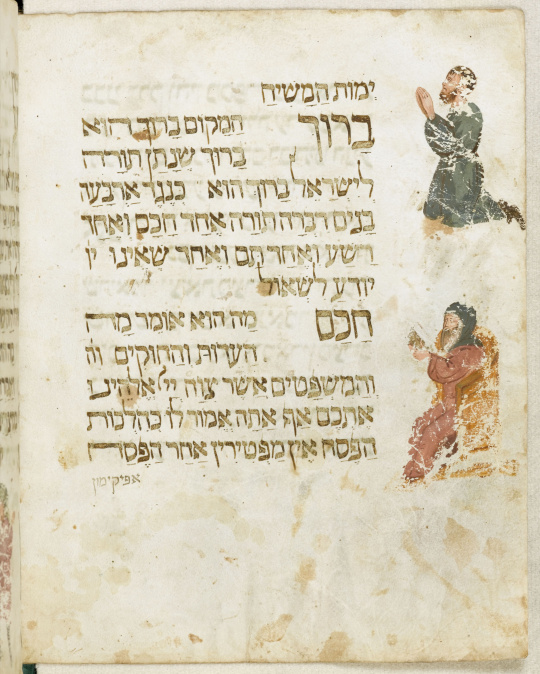 ימות המשיח
ברוך המקום ברוך הוא
ברוך שנתן תורה
לישראל ברוך הוא כנגד ארבעה
בנים דברה תורה אחד חכם ואחד
רשע ואחד תם ואחד שאינו יו
יודע לשאול
חכם מה הוא אומר מה
העדות והחוקים וה
והמשפטים אשר צוה יי אלהינו
אתכם אף אתה אמור לו כהלכות
הפסח אין מפטירין אחר הפסח
אפיקימון